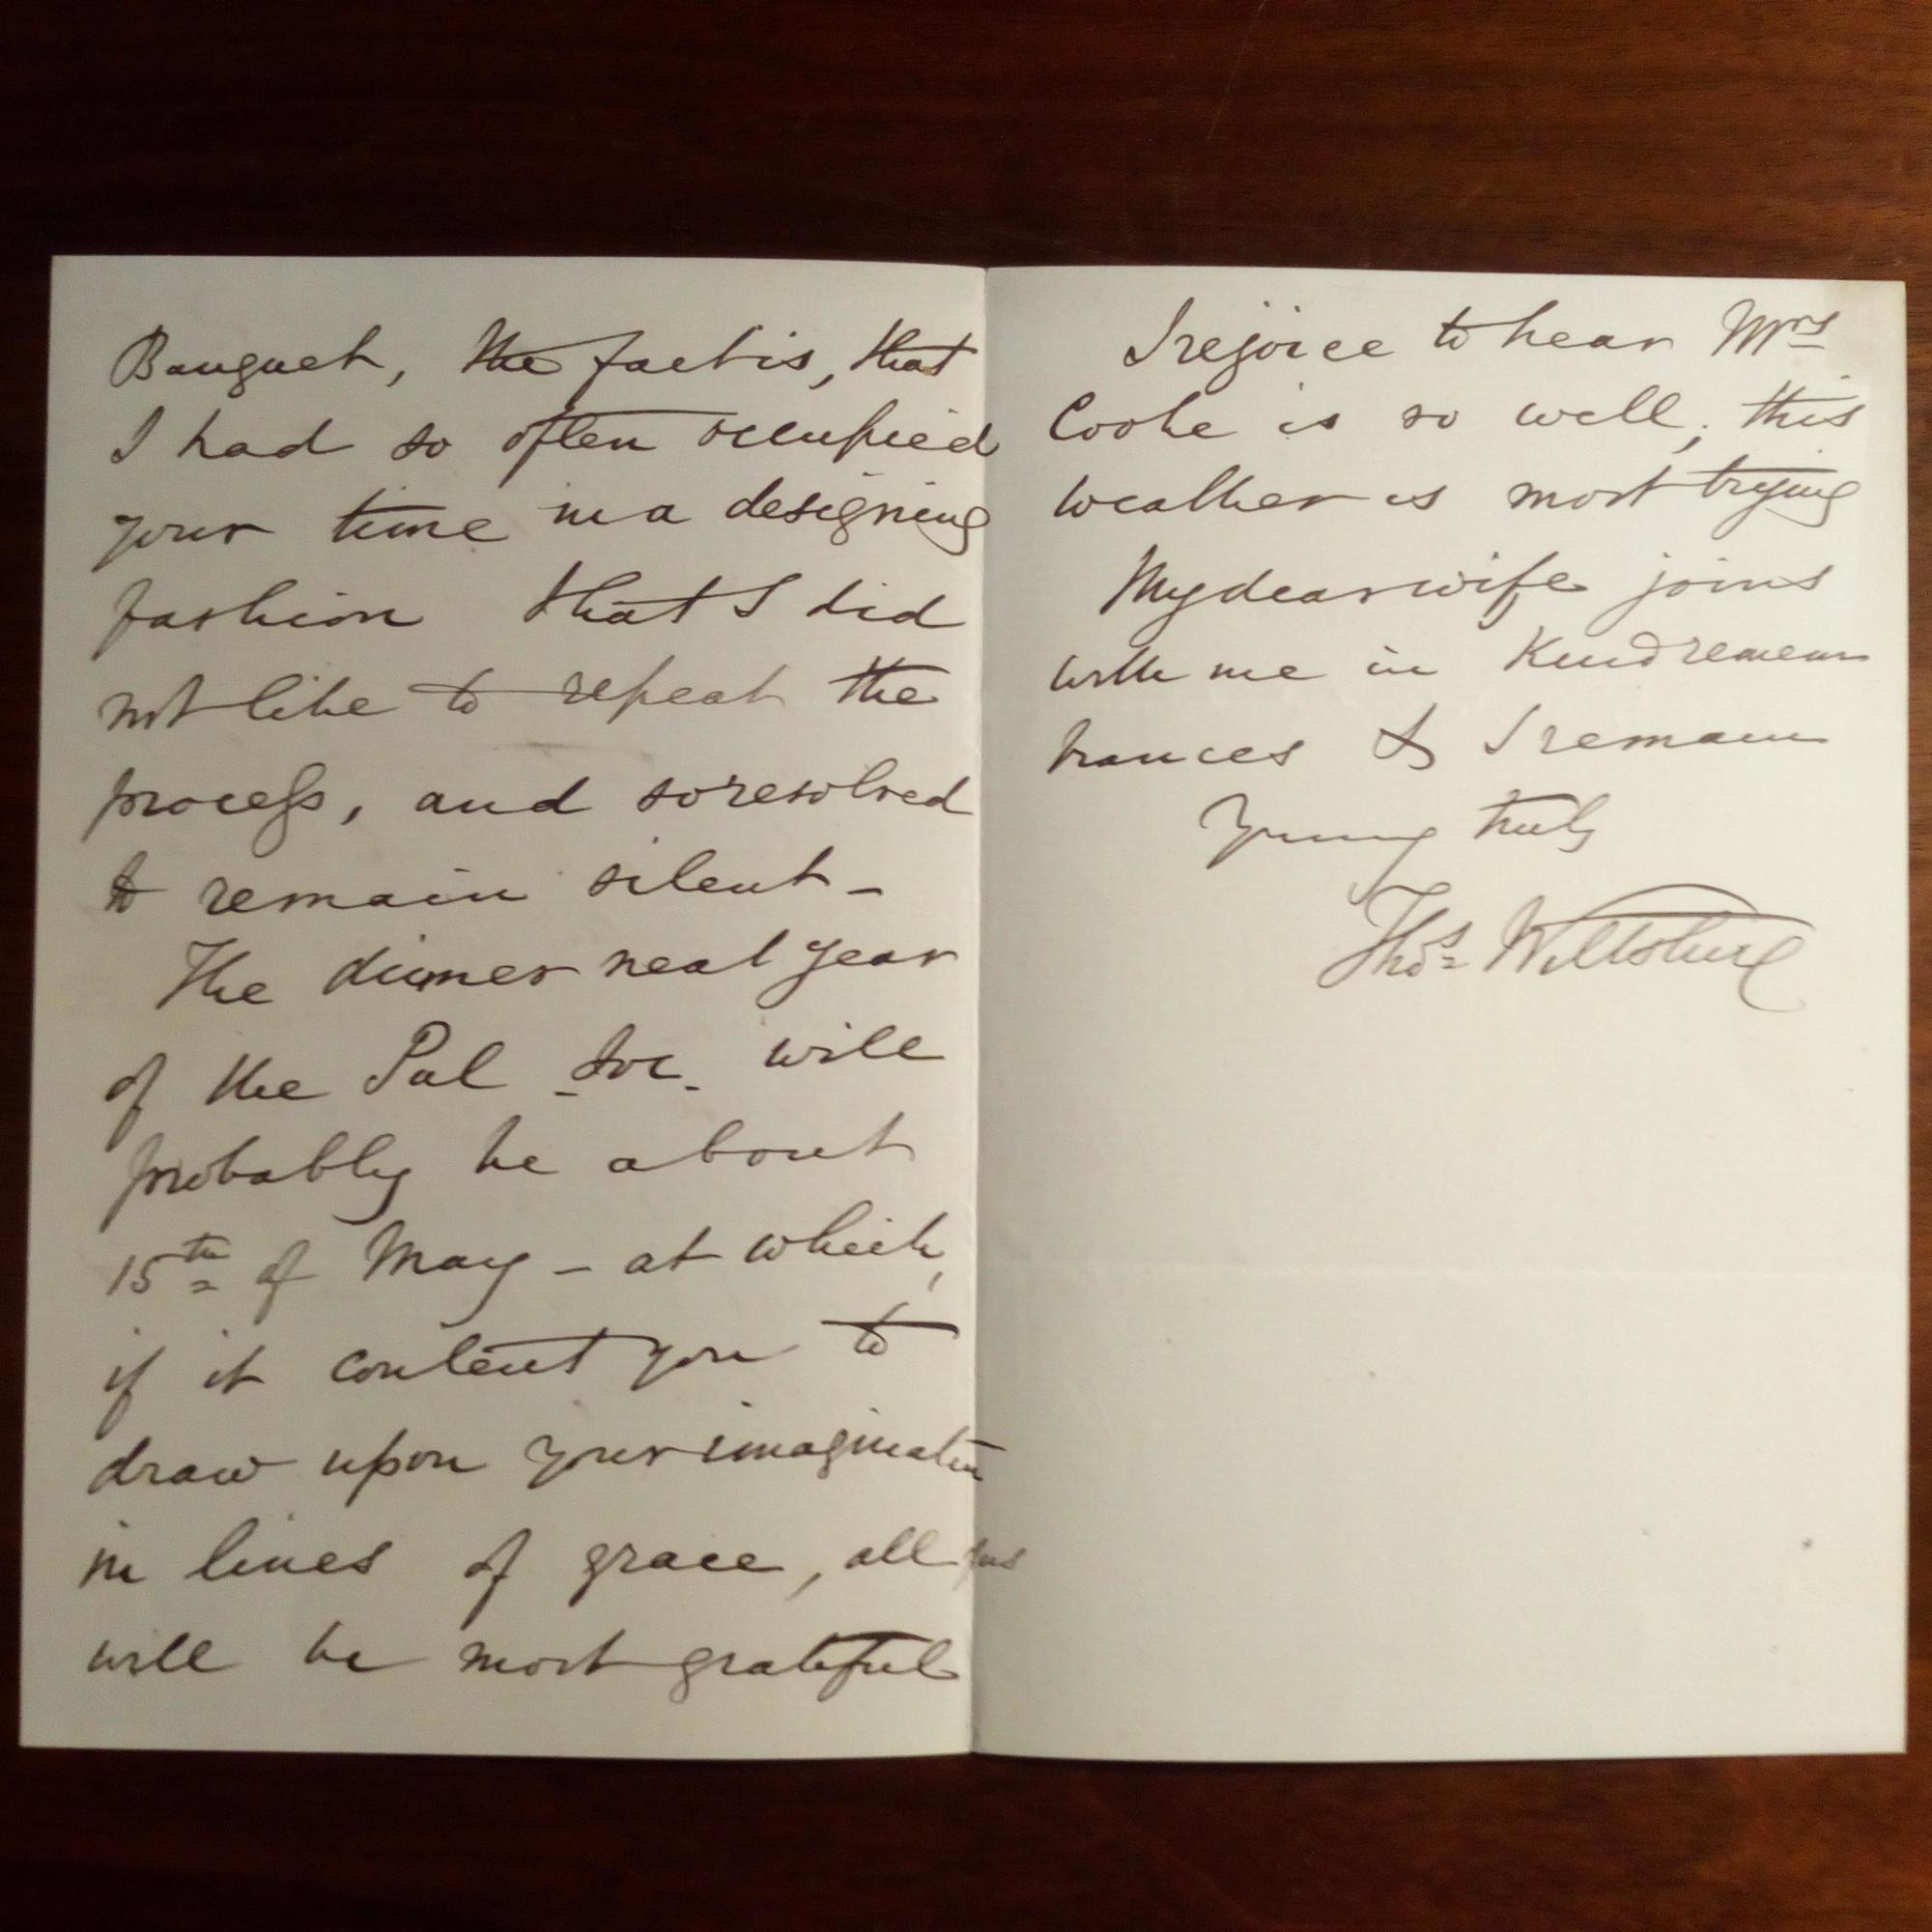 Banquet, the fact is, that
I had so often occupied
your time in a designing
fashion that I did
not like to repeat the
process, and so resolved
to remain silent -
The dinner next year
of the Pal. Soc. will
probably be about
15th of May - at which,
if it content you to
draw upon your imagination
in lines of grace, all
will be most grateful
I rejoice to hear Mrs
Cooke is so well; this
weather is most trying
My dear wife joins
with me in Kind remem
brances & I remain
Yours truly
Thos Wiltshire